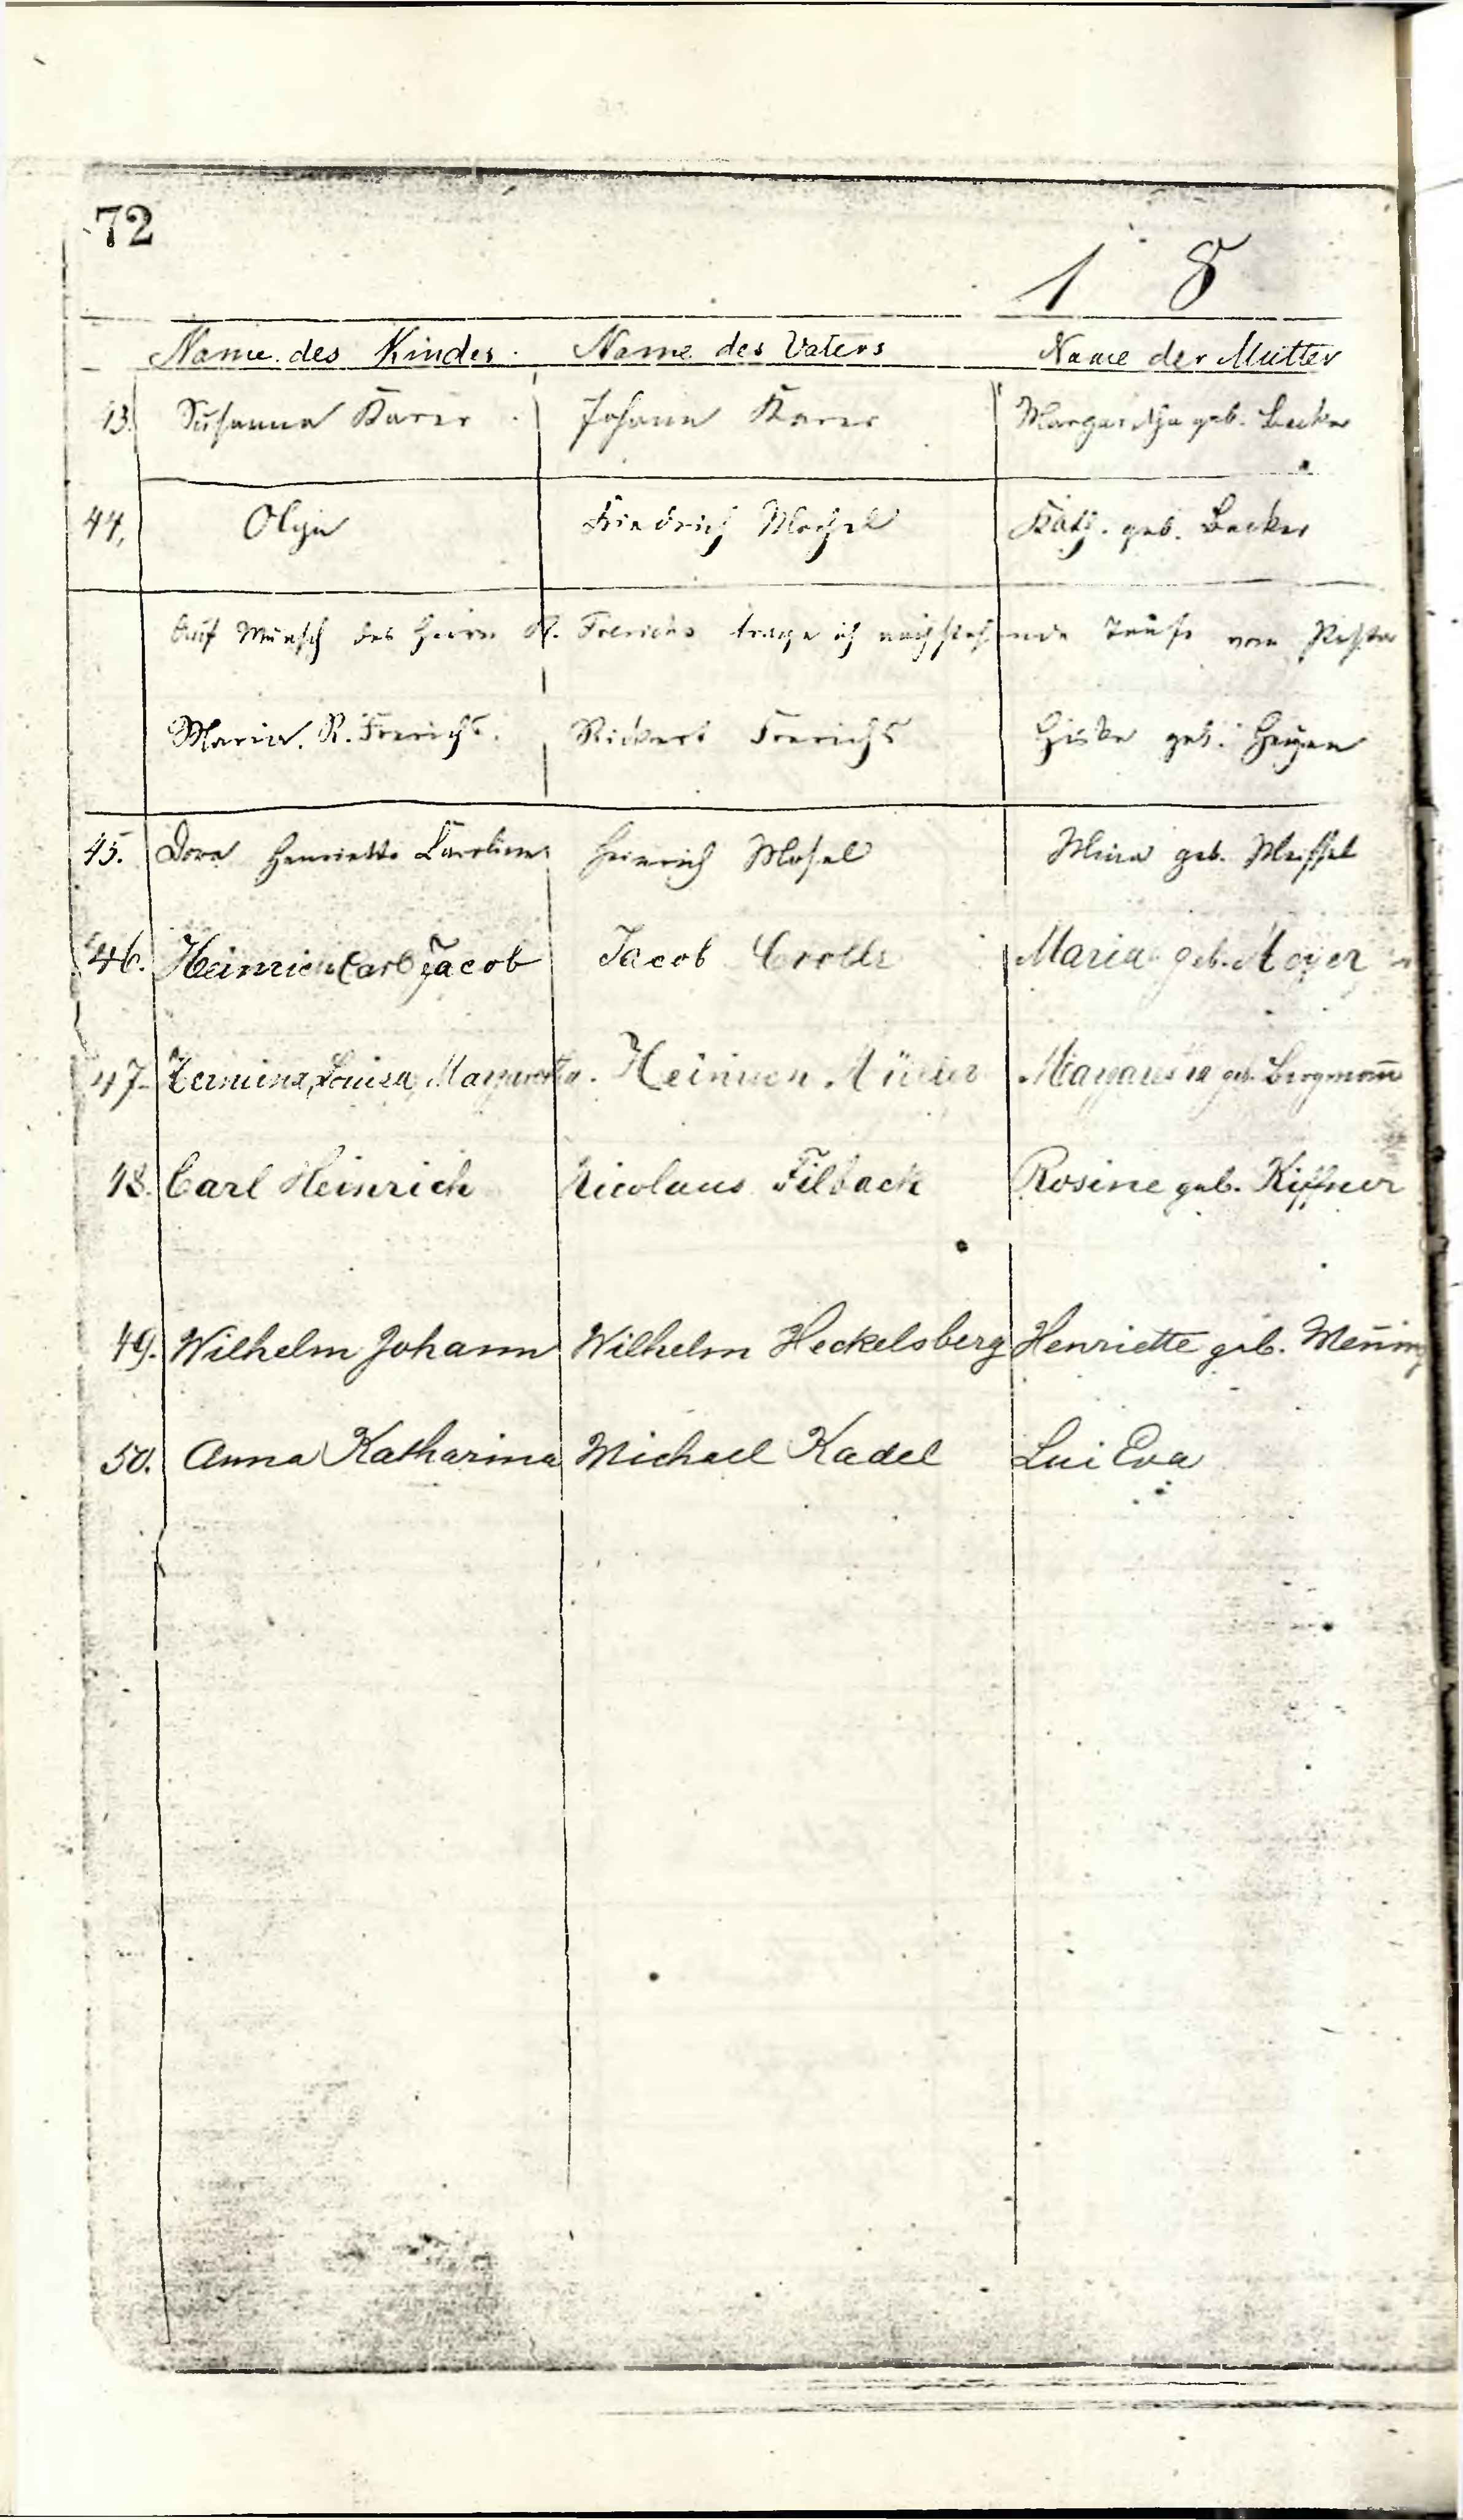 72
1 8
Name des Kindes. Name des Vaters Name der Mutter
43. Susanna Karer Johann Karer Margaretha geb. Becker
44. Olga Friedrich Mechel Kath. geb. Becker
Auf Wunsch des Herrn R. Frerichs trage ich nachstehende Taufe vom Pastor
Maria R. Frerichs. Rickert Frerichs geb. Heyen
45. Dora Henriette Caroline Heinrich Mosel Mina geb.
46. Heinrich Carl Jacob Jacob Maria geb. Meyer
47. Hermina, Louisa, Margaretha. Heinrich Müller Margaretha geb. Bergmann̄
48. Carl Heinrich Nicolaus Filback Rosine geb. Kiffner
49. Wilhelm Johann Wilhelm Heckelsberg Henriette geb.
50. Anna Katharina Michael Kadel Lui Eva